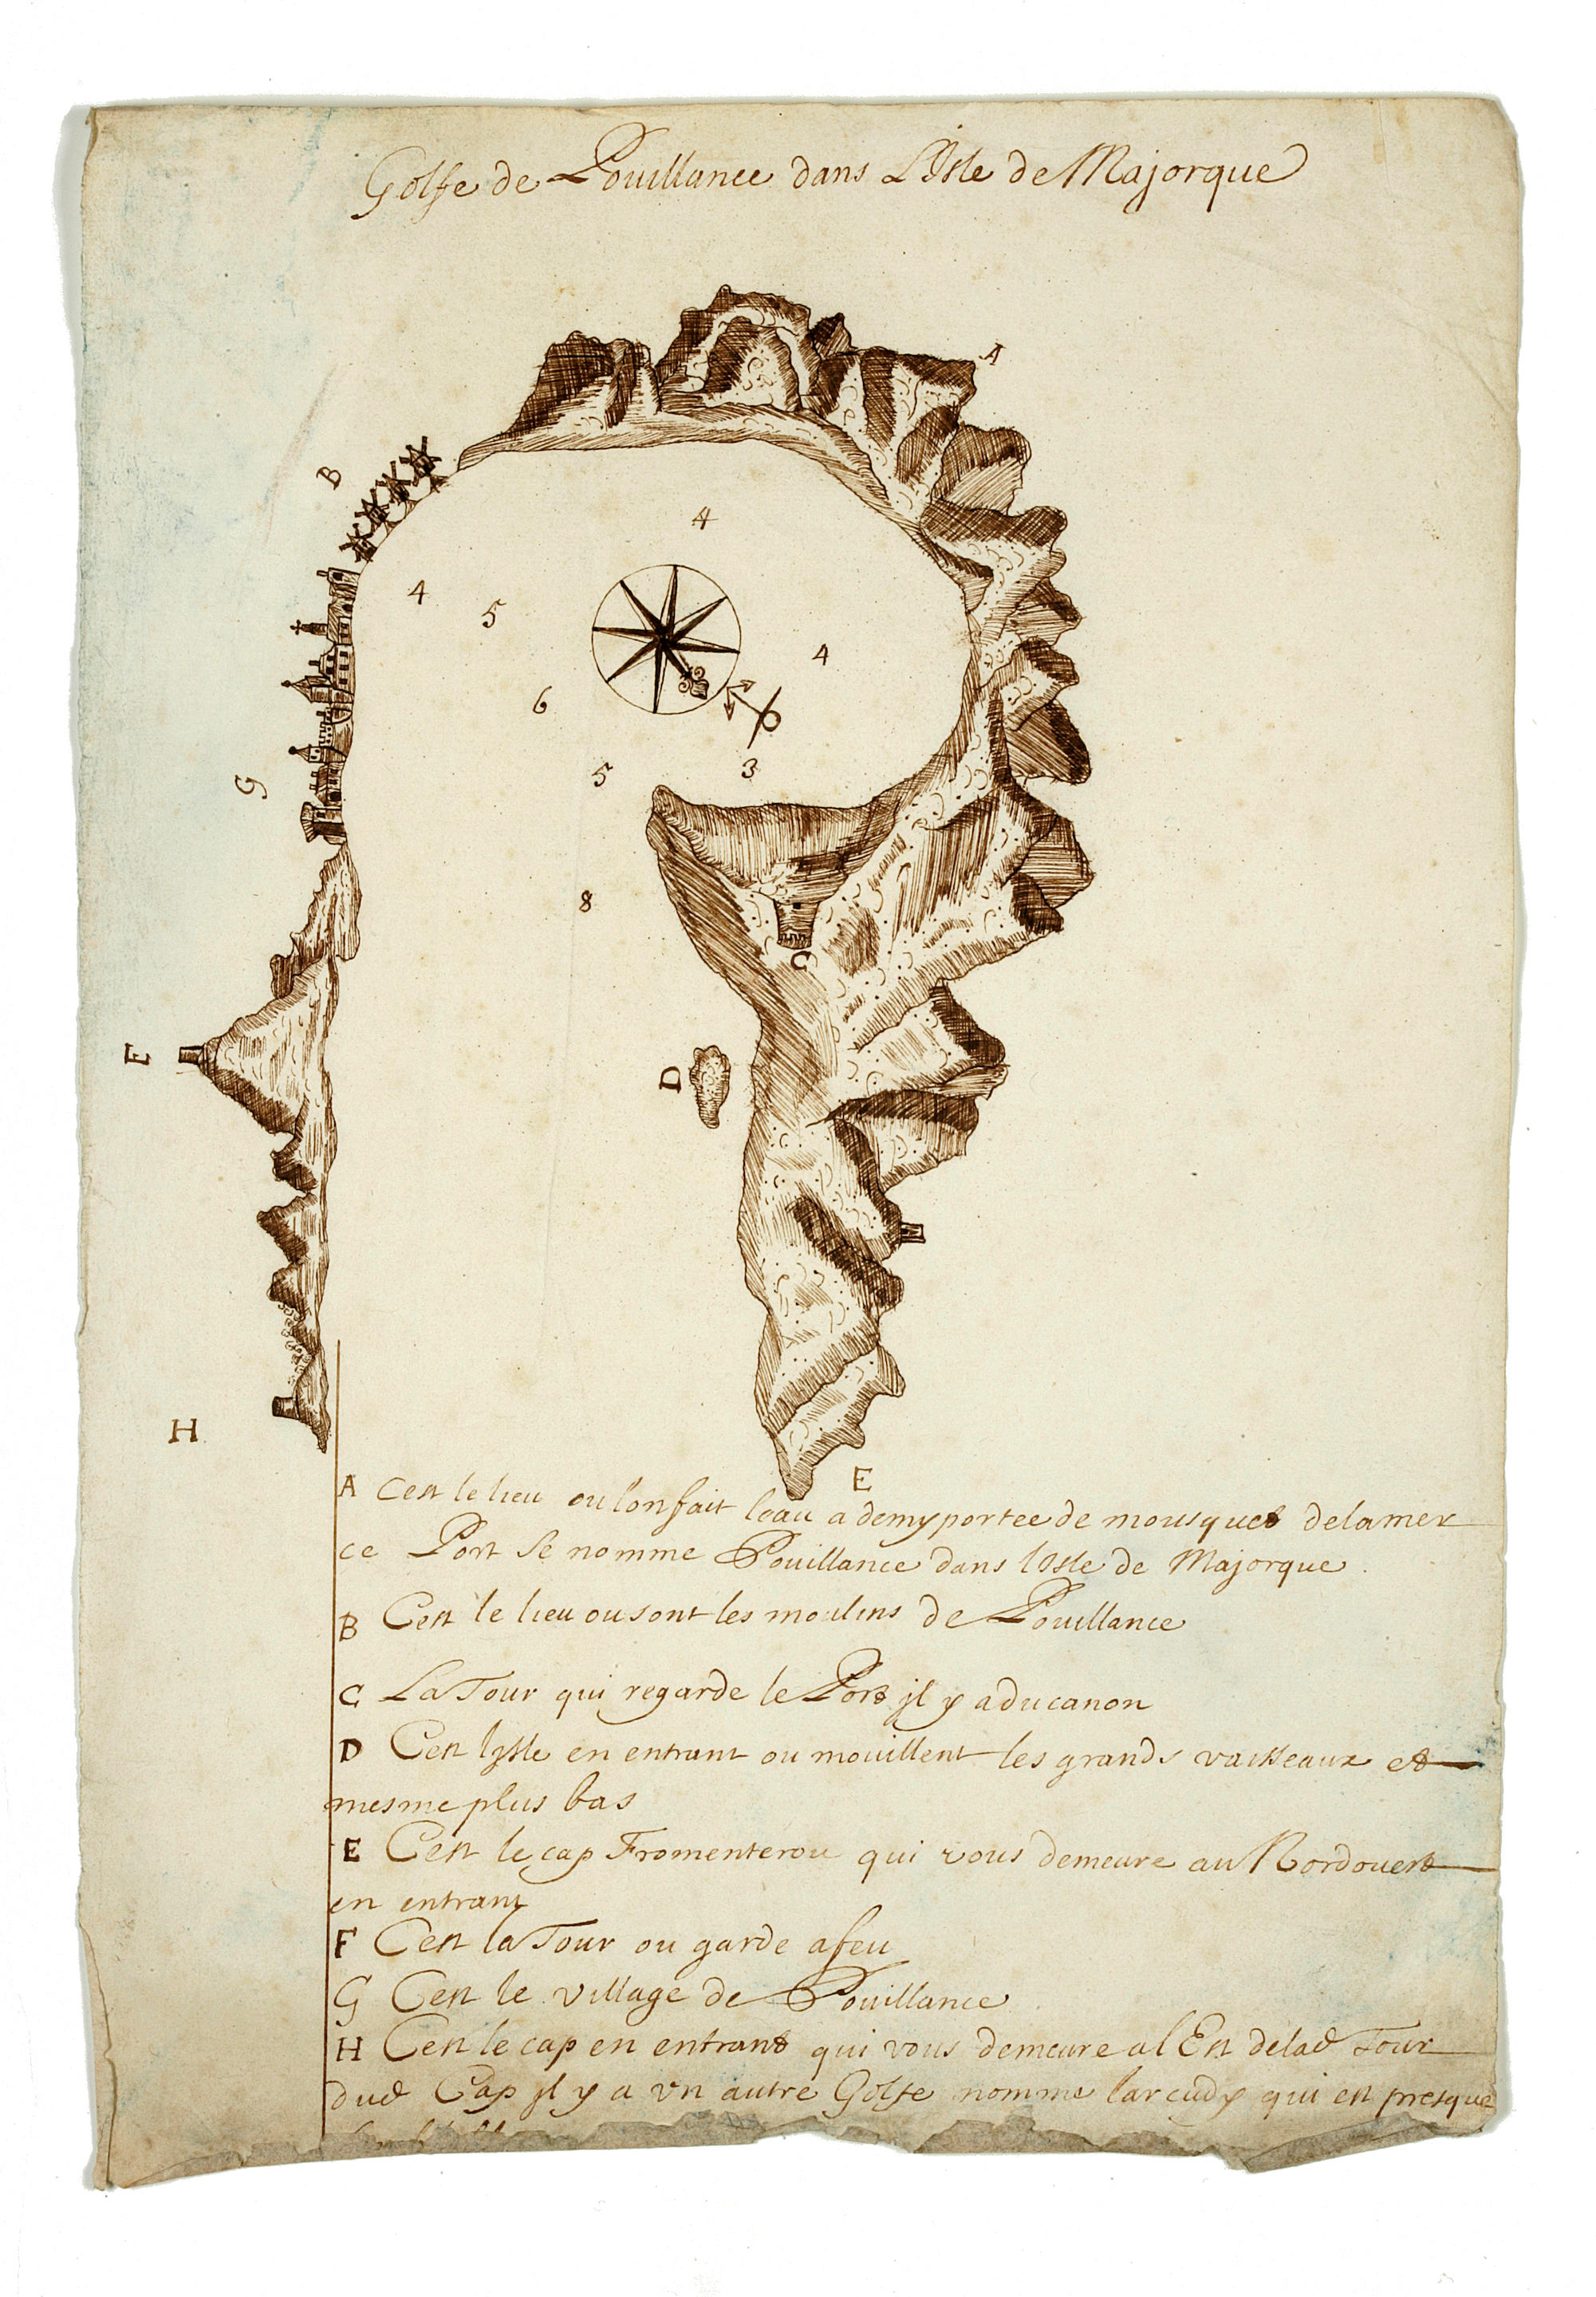 Golfe de Pouillance dans L'Isle de Majorque
A
B
4
4
5
4
6
5
3
G
8
C
F
D
H
E
A Cest le lieu ou lon fait leau a demy portee de mousquet de la mer
ce Port se nomme Pouillance dans lisle de Majorque
B Cest le lieu ou sont les moulins de Pouillance
C La Tour qui regarde le Port jl y a du canon
D Cest lysle en entrant ou mouillent les grands vaisseaux et
mesme plus bas
E Cest le cap Fromenterou qui vous demeure au Nordouest
en entrant
F Cest la Tour ou garde a feu
G Cest le village de Pouillance
H Cest le cap en entrant qui vous demeure a l Est de lad Tour
dud Cap jl y a vn autre Golfe nomme larcudy qui est presque